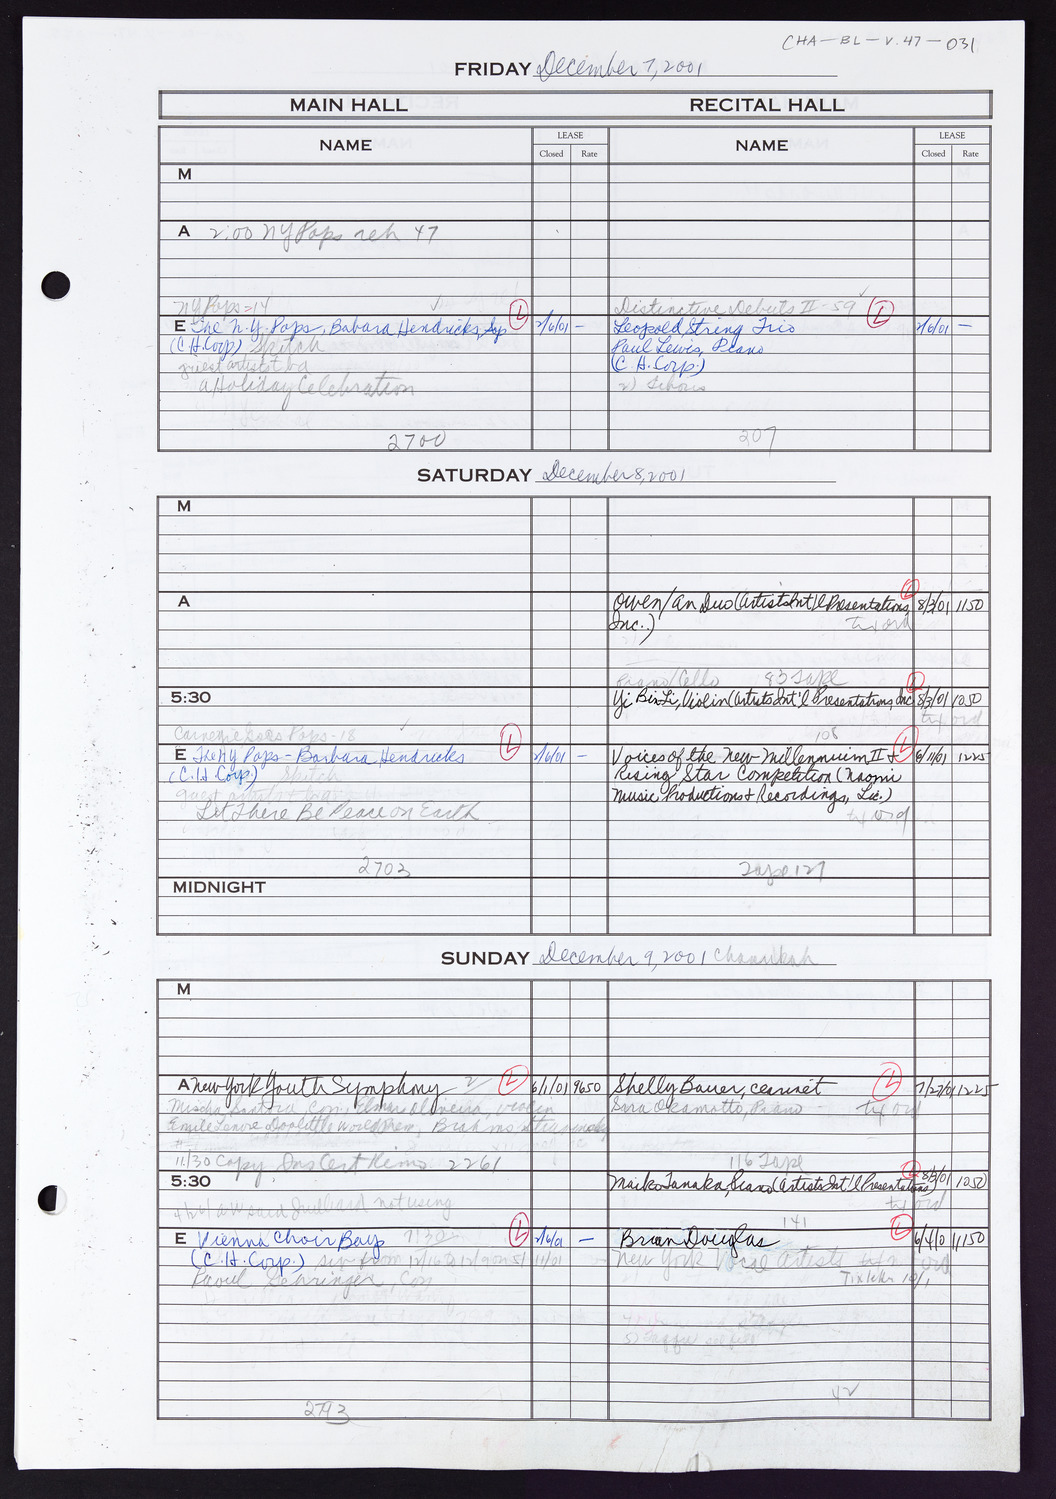 CHA-BL-V.47-031
FRIDAY December 7, 2001
MAIN HALL RECITAL HALL
NAME LEASE Closed Rate NAME LEASE Closed Rate
M
A 2:00 NY Pops reh 47
NY Pops=14 Distinctive Debuts II-59
E The N.Y. Pops, Babara Hendricks, Sop L 2/6/01 - Leopold String Trio L 2/6/01 -
(C.H.Corp) Skitch Paul Lewis, Piano
guest artist tba (C.H.Corp.)
A Holiday Celebration
2700 207
SATURDAY December 8, 2001
M
A Owen/An Duo (Artists Int'l Presentations, L 8/3/01 1150
Inc.) tix ord
Piano/Cello 93 Tape
5:30 Yi Bin Li, Violin (Artists Int'l Presentations, Inc L 8/3/01 1050
tix ord
Carnegie Pops-18 108
E The NY Pops - Barbara Hendricks L 2/6/01 - Voices of the New Millennium II & L 6/11/01 1225
(C.H. Corp.) Skitch Rising Star Competition (Naomi
guest artists Music Productions & Recordings, Ltd.)
Let There Be Peace on Earth tix ord
2703 Tape 127
MIDNIGHT
SUNDAY December 9, 2001 Chanukah
M
A New York Youth Symphony L 6/1/01 9650 Shelly Bauer, clarinet L 7/27/01 1225
Mischa Santora, Con, Elmar Oliveira, violin Sara Okamatto, Piano tix ord
Brahms Stravinsky
11/30 Copy Ins Cert Kims 2261 116 Tape
5:30 Maiko Tanaka, Piano (Artists Int'l Presentations) L 8/3/01 1050
said Juilliard not using tix ord
141
E Vienna Choir Boys 7:30 L 2/6/01 - Brian Douglas L 6/4/01 1150
(C.H. Corp.) from 12/16 to 12/9 on 5/11/01 New York Vocal Artists tix ord
Raoul Gehringer, Con Tix 10/1
42
2793